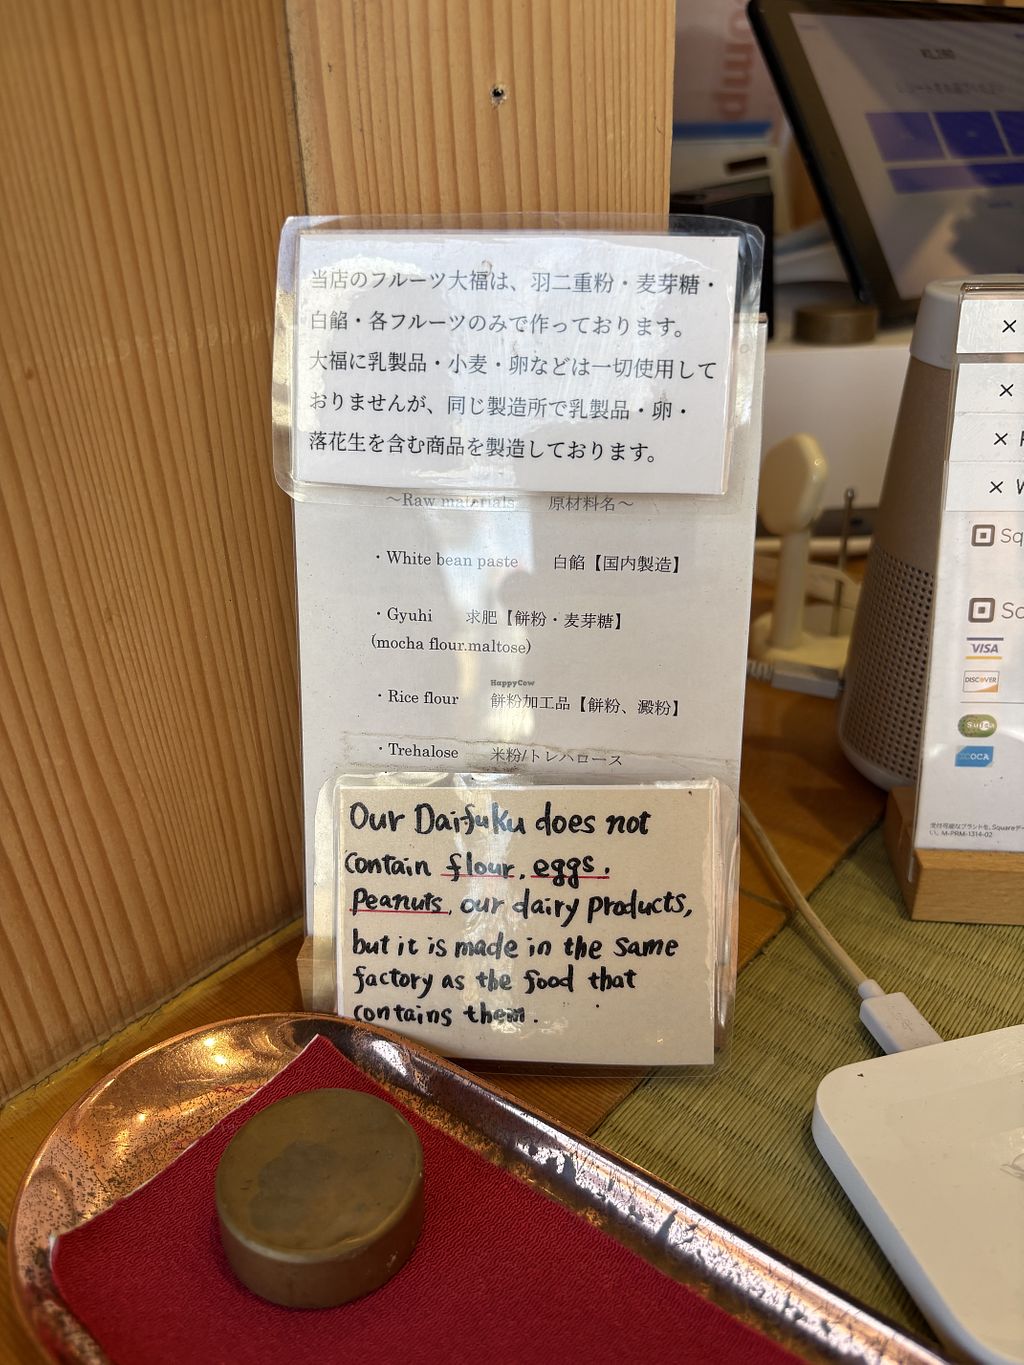 当店のフルーツ大福は、羽二重粉・麦芽糖・
白餡・各フルーツのみで作っております。
大福に乳製品・小麦・卵などは一切使用して
おりませんが、同じ製造所で乳製品・卵・
落花生を含む商品を製造しております。
～Raw materials 原材料名～
・White bean paste 白餡【国内製造】
・Gyuhi 求肥【餅粉・麦芽糖】
(mocha flour.maltose)
HappyCow
・Rice flour 餅粉加工品【餅粉、澱粉】
・Trehalose 米粉/トレハロース
Our Daifuku does not
contain flour, eggs.
Peanuts, our dairy products,
but it is made in the same
factory as the food that
contains them.
VISA
DISCOVER